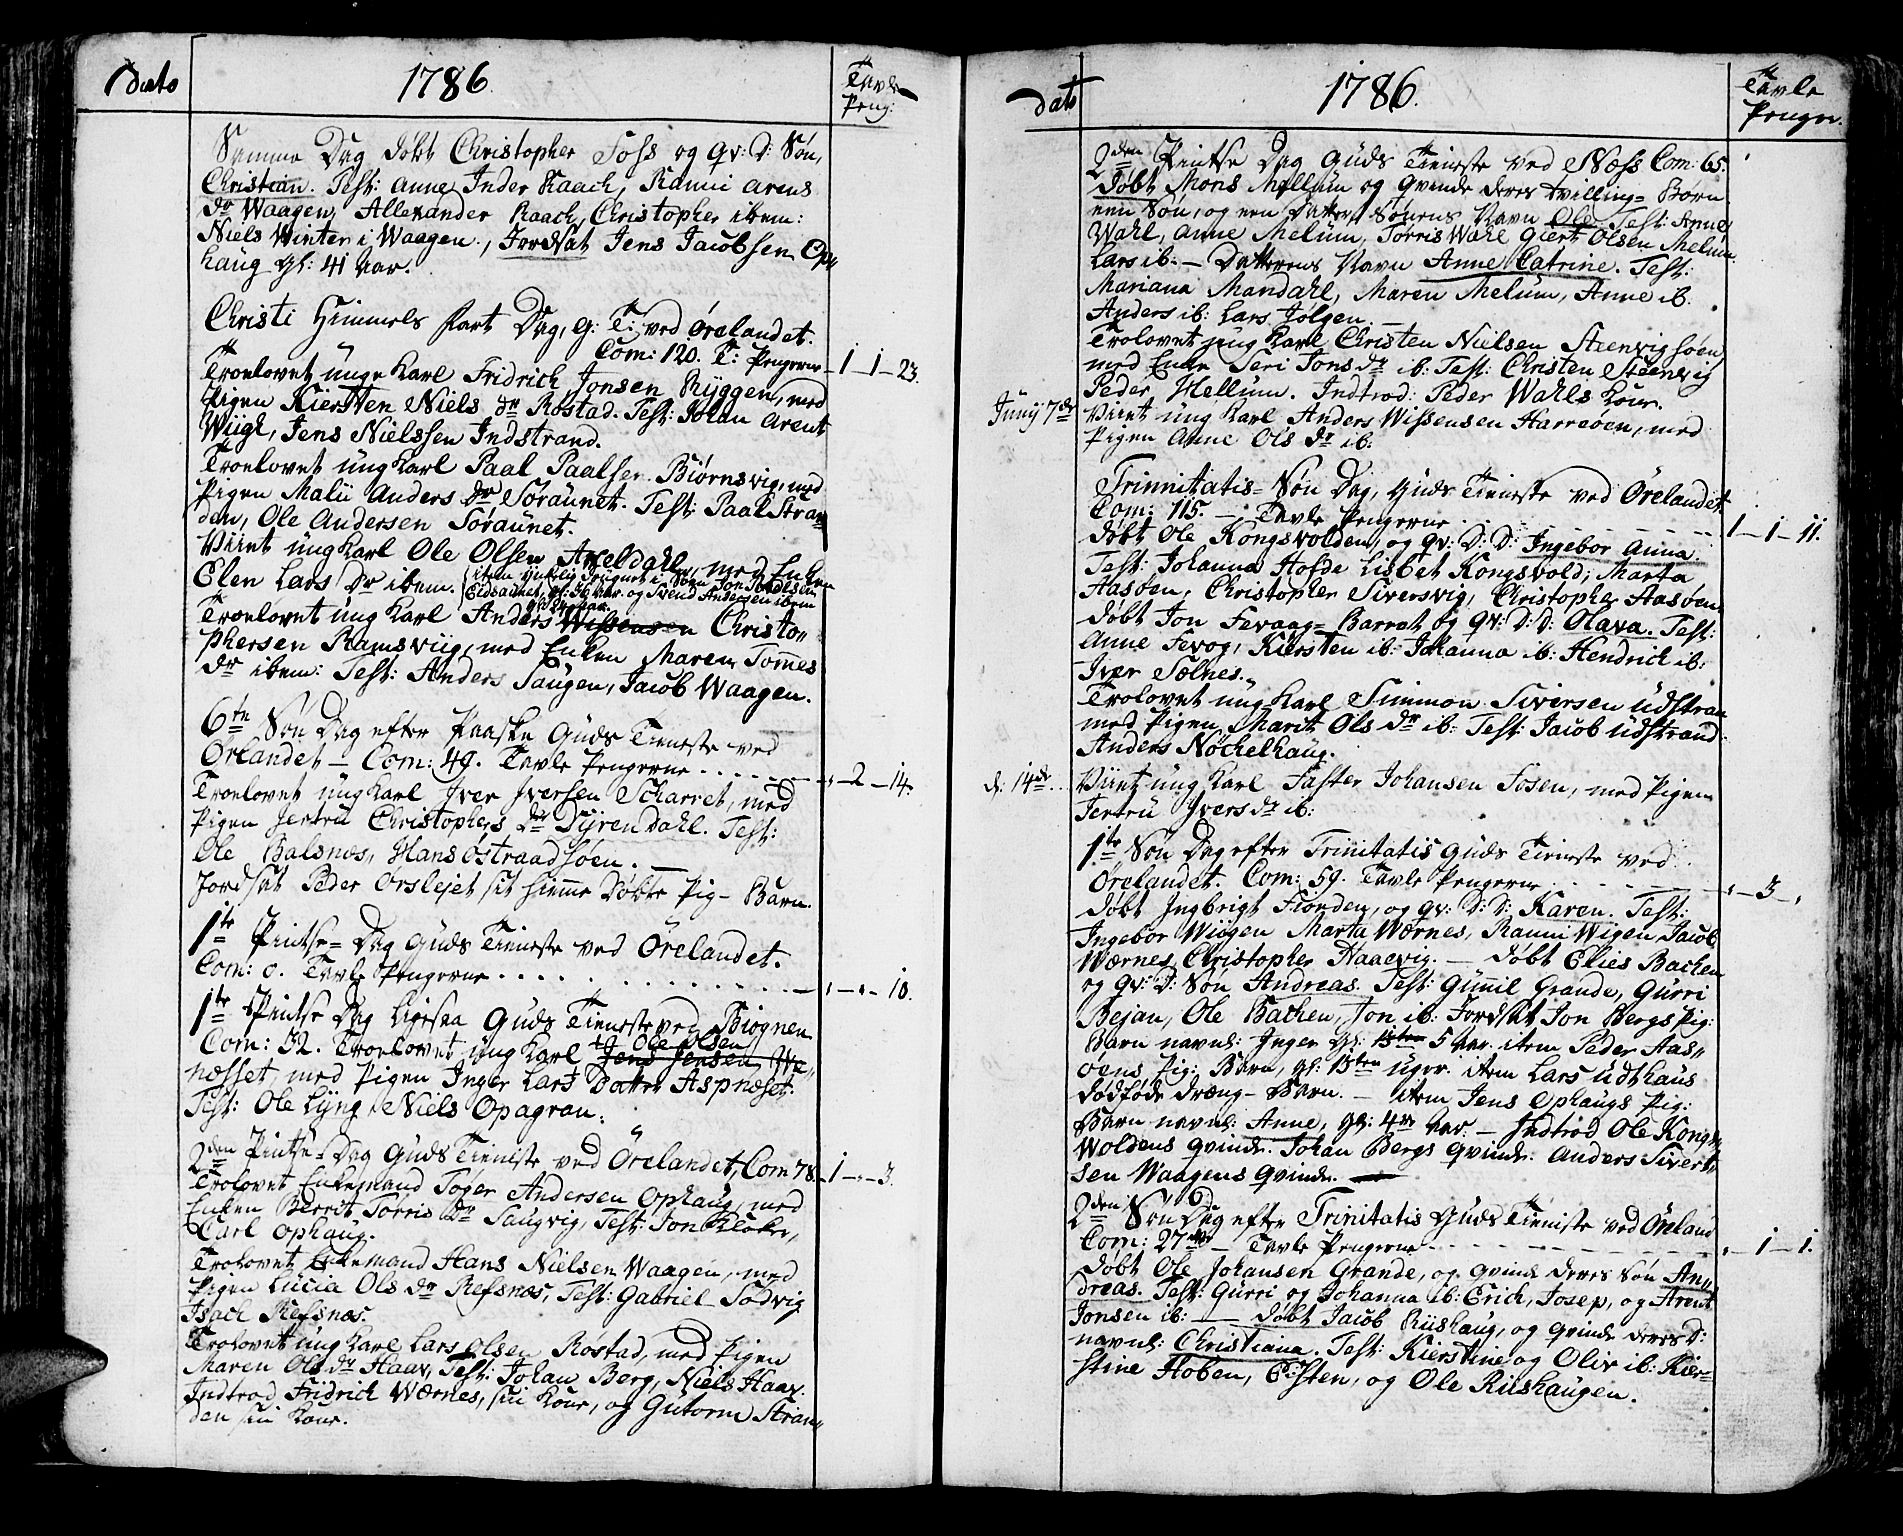 dato 1786. Tavle Peng:
Samme Dag døbt Christopher Foss og qv: D: Søn,
Christian. Test: Anne, Inder Raach, Ranni Arens
dr Waagen, Allexander Raach, Christopher ibem:
Niels Winter i Waagen., Jordsat Jens Jacobsen Op„
haug gl: 41 aar.
Christi Himmels fart Dag, G: T: ved Ørelandet.
Com: 120. T: Pengerne 1-1-23.
Troelovet unge Karl Fridrich Jonsen Ryggen, med
Pigen Kiersten Niels dr Røstad. Test: Johan Arent
Wiigh, Jens Nielssen Indstrand.
Troelovet ung Karl Paal Paalsen Biørnsvig, med
Pigen Malii Anders dr Søraunet. Test: Paal Stran
den, Ole Andersen Søraunet.
Viiet ung Karl Ole Olsen Meldahl, med Enken
Elen Lars Dr ibem. (item
Eidsaunet, gl: 36 aar og Svend Andersen ibem
Troelovet ung Karl Anders Wissensen Christo„
phersen Ramsviig, med Enken Maren Tommes
dr ibem: Test: Anders Saugen, Jacob Waagen.
6te Søn Dag efter Paaske Guds Tieneste ved
Ørlandet – Com: 49. Tavle Pengerne ..... „-2-14.
Troelovet ung Karl Iver Iversen Scharret, med
Pigen Jertru Christophers dr Dyrendahl. Test:
Ole Balsnes, Hans Østraadsøen.
Jordsat Peder Ørslejet sit hiemme døbte Pig-Barn.
1te Pintse-Dag Guds Tieneste ved Ørelandet.
Com: 0. Tavle Pengerne ..... „-„-10.
1te Pintse Dag ligesaa Guds Tieneste ved Biognen
Com: 32. Troelovet ung Karl Jens Jensen Ole Olsen We„
næsset, med Pigen Inger Lars Datter Aspnæset.
Test: Ole Lyng, Niels Opagran.
2den Pintse-Dag Guds Tieniste ved Ørelandet, Com 78. 1-„-3.
Trolovet Enkemand Toger Andersen Ophaug, med
Enken Berrit Torris dr Saugvig, Test: Jon Kloker,
Carl Ophaug.
Trolovet Enkemand Hans Nielsen Waagen, med
Pigen Lucia Ols dr Refsnæs, Test: Gabriel Sodvig
Isach Refsnæs.
Trolovet ung Karl Lars Olsen Røstad, med Pigen
Maren Ols dr Haav, Test: Johan Berg, Niels Haav.
Indtrod Fridrich Wærnes, sin Kone, og Gutorm Stran„
den sin Kone.
dato 1786. Tavle Pengen.
2den Pintse Dag Guds Tieneste ved Næss Com: 65.
Døbt Mons Mellum og Qvinde deres tvilling-Børn
een Søn, og een Datter, Sønens Navn Ole Test: Anne
Wahl, Anne Melum, Torris Wahl Giert Olsen Melum
Lars ib: – Datterens Navn Anne Catrine. Test:
Mariana Mandahl, Maren Melum, Anne ib.
Anders ib: Lars Jølgen.
Trolovet ung Karl Christen Nielsen Steenvigsøen
med Enke Seri Jons dr ib: Test: Christen Steenvig
Peder Hellum. Indtrod: Peder Wahls Kone.
Junij 7de Viiet ung Karl Anders Wissensen Harreøen, med
Pigen Anne Ols dr ib:
Trinnitatis-Søn Dag, Guds Tieneste ved Ørelandet
Com: 115 – Tavle Pengerne 1-1-11.
døbt Ole Kongsvolden, og qv: D: D: Ingebor Anna.
Test: Johanna Hofde Lisbet Kongsvold, Marta
Aasøen, Christopher Siversvig, Christopher Aasøen,
døbt Jon Fevaag-Barret og qv: D: D: Olava. Test:
Anne Fevog, Kiersten ib: Johanna ib: Hendrich ib:
Iver Solnes.
Trolovet ung Karl Simmon Siversen Udstran
med Pigen Marit Ols dr ib: Test: Jacob Udstrand
Anders Nöckelhaug.
d: 14de Viiet ung Karl Faster Johansen Fosen, med Pigen
Jertru Ivers dr ib:
1te Søn Dag efter Trinitatis Guds Tieneste ved
Ørelandet. Com: 59. Tavle Pengerne „-3-„
døbt Ingbrigt Fiorden, og qv: D: D: Karen. Test:
Ingebor Wiogen Marta Wærnes, Ranni Wigen Jacob
Wærnes, Christopher Haaevig. – Døbt Elies Bachen
og qv: D: Søn Andreas. Test: Gunnil Grande, Gurri
Bejan, Ole Bachen, Jon ib: Jordsat Jon Bergs Pig:
Barn navnl: Inger gl: 5 aar. item Peder Aas„
øens Pig: Barn, gl: 13ten uger. item Lars Udthaus
dødføde dræng-Barn. – item Jens Ophaugs Pig:
Barn navnl: Anne, gl: 4re aar. – Indtrod Ole Kongs„
Woldens qvinde. Johan Bergs qvinde. Anders Sivert„
sen Waagens qvinde.
2den Søn Dag efter Trinitatis Guds Tieniste ved Ørland
Com: 27 – Tavle Pengerne „-1-1.
døbt Ole Johansen Grande, og qvinde deres Søn An„
dreas. Test: Gurri og Johanna ib: Erich, Josep, og Arent
Jonsen ib: – døbt Jacob Riishaug, og qvinde deres D:
navnl: Christiana. Test: Kierstine og Oliv ib: Kier„
stine Hoben, Ersten, og Ole Riishaugen.